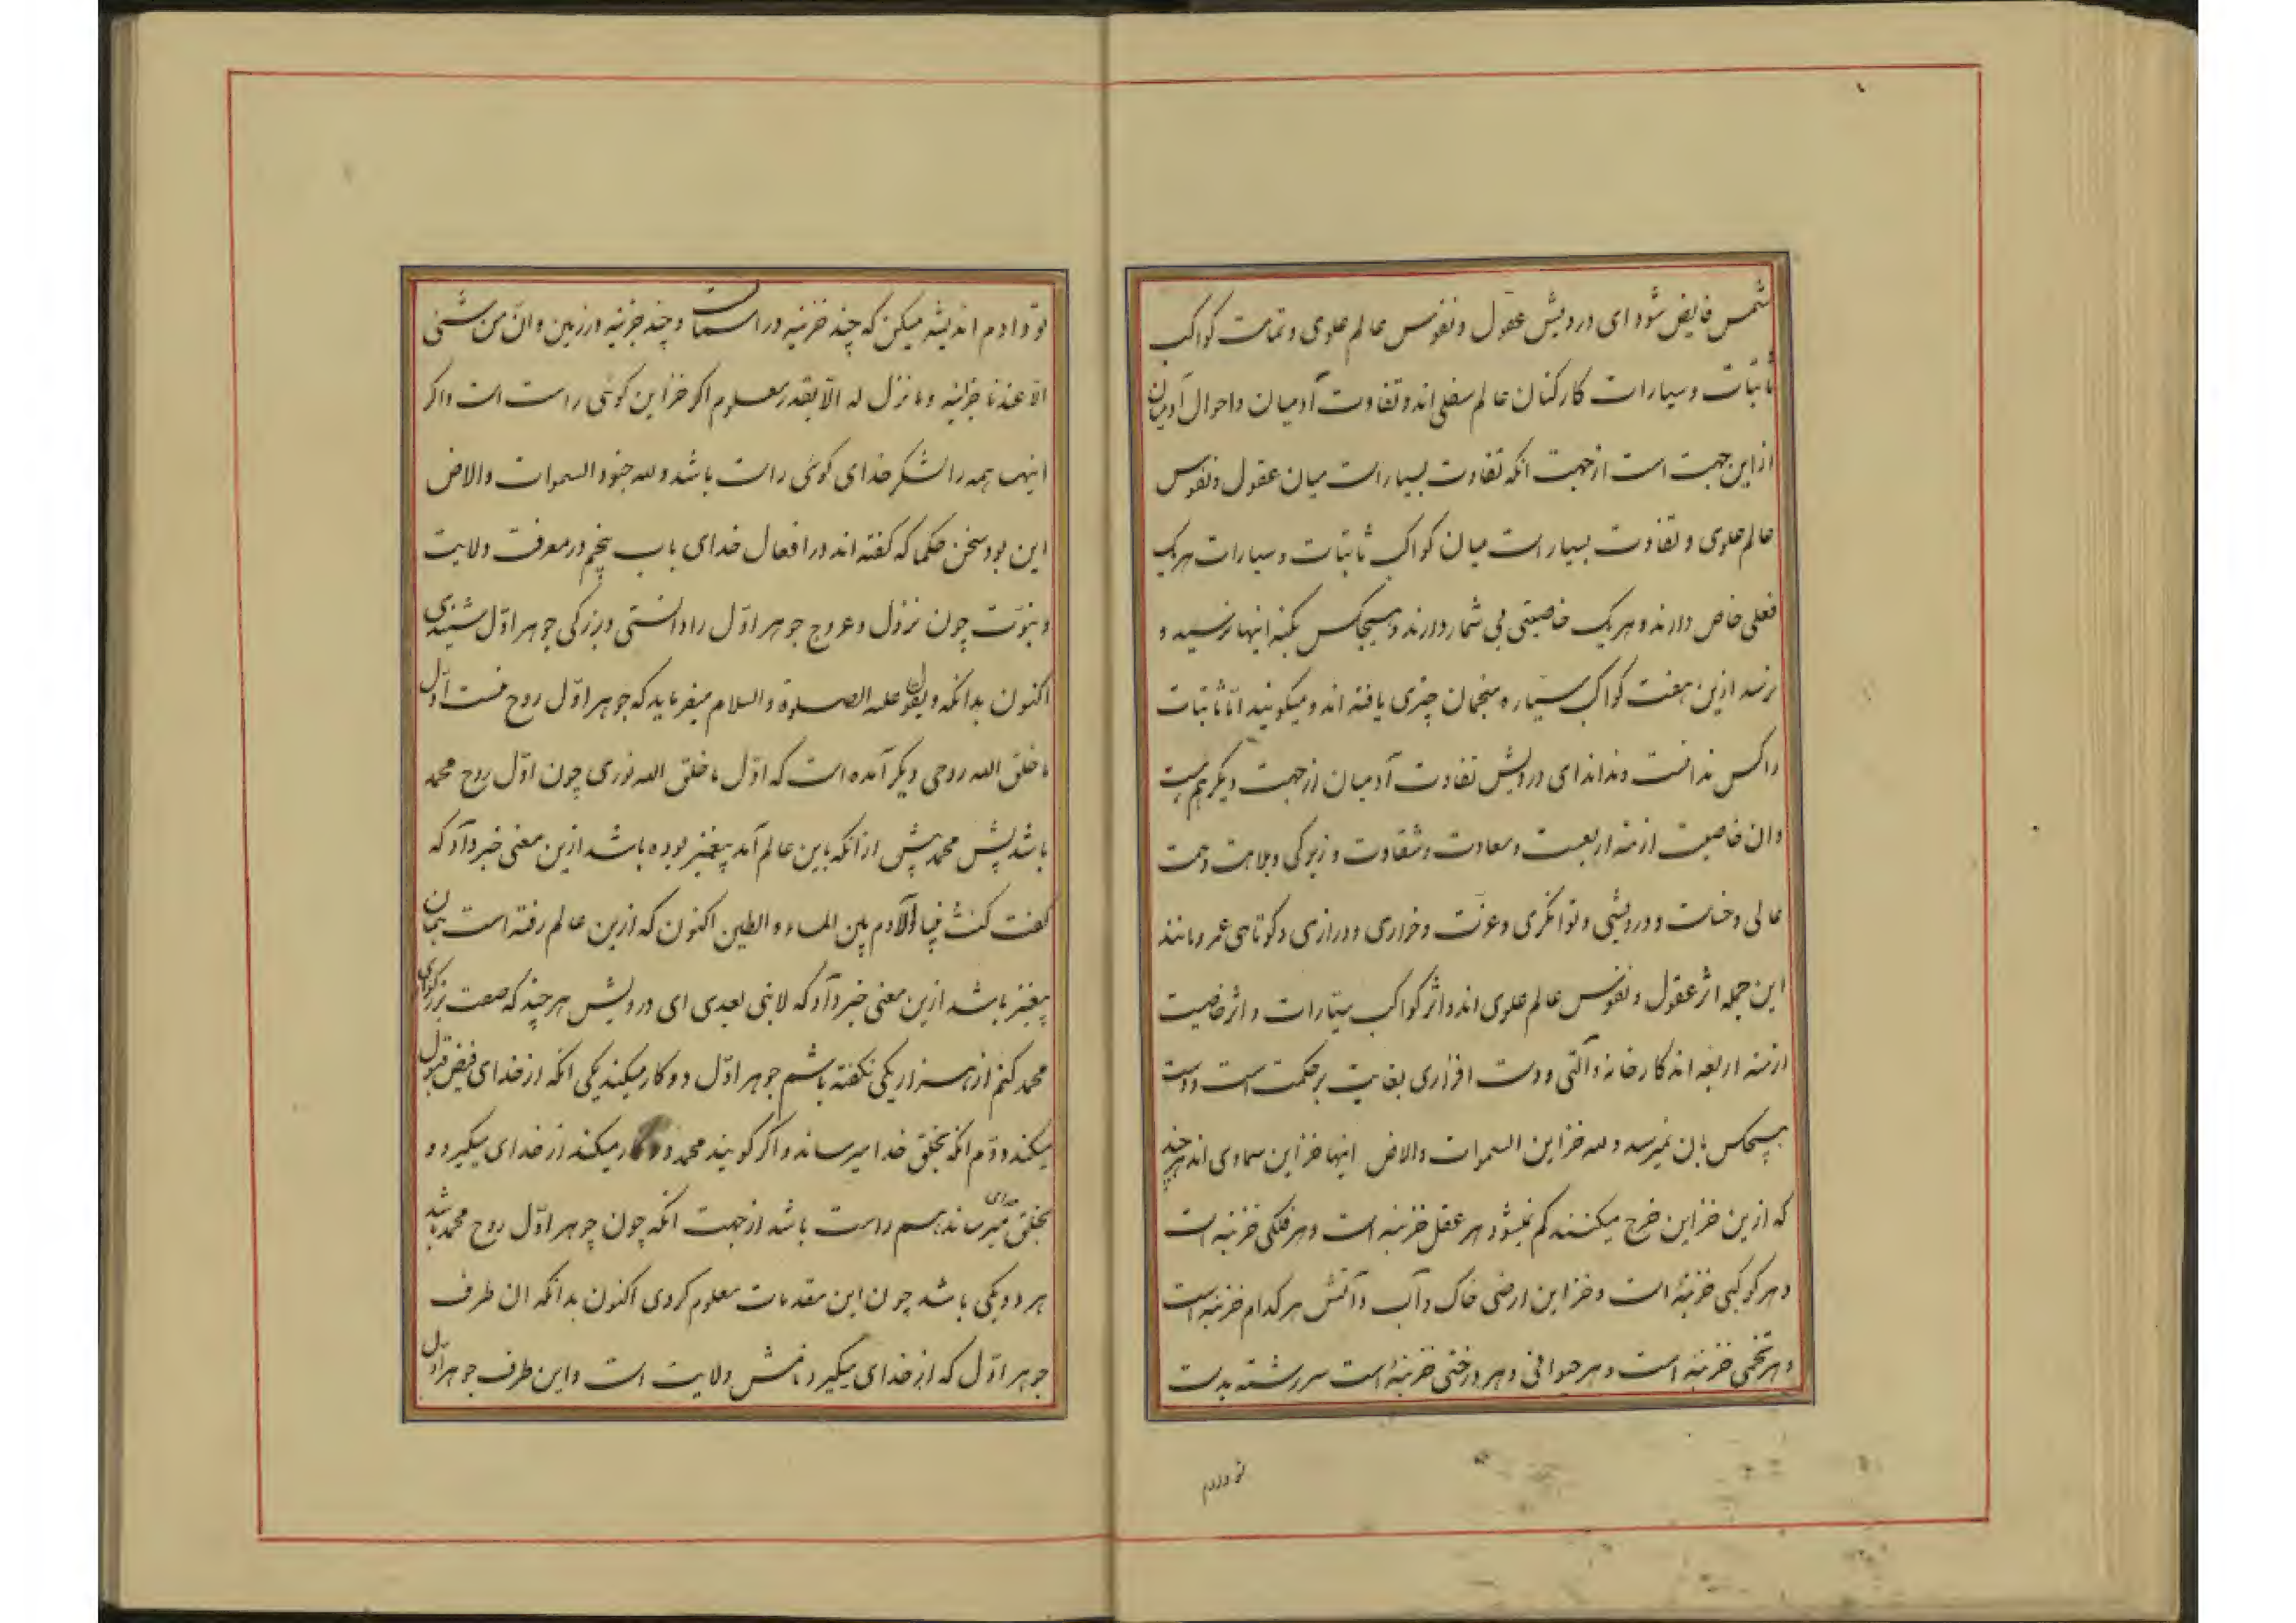 شمس فایض شود ای درویش عقول و نفوس عالم علوی و تمامت کواکب
ثابتات و سیارات کارکنان عالم سفلی اند و تفاوت آدمیان و احوال آدمیان
ازاین جهت است از جهت انکه تفاوت بسیار است میان عقول و نفوس
عالم علوی و تفاوت بسیار است میان کواکب ثابتات و سیارات هریک
فعلی خاص دارند و هریک خاصیتی بی شمار دارند و هیچکس بکنه اینها نرسید و
نرسد ازین هفت کواکب سیّاره منجمان چیزی یافته اند و میکویند امّا ثابتات
را کس ندانست و نداند ای درویش تفاوت آدمیان از جهت دیکر هم هست
وان خاصیت ازمنه اربعست و سعادت و شقاوت و زیرکی و بلاهت و همت
عالی و خساست و درویشی و توانکری و عزّت و خواری و درازی و کوتاهی عمر و مانند
این جمله اثر عقول و نفوس عالم علوی اند و اثر کواکب سیّارات و اثر خاصیت
ازمنه اربعه اند کارخانه و آلتی و دست افزاری بغایت پر حکمت است و دست
هیچکس بان نمیرسد و لله خزاین السموات والارض اینها خزاین سماوی اند هر چند
که ازین خزاین خرج میکنند کم نمیشود هر عقل خزینه است و هر فلکی خزینه است
و هر کوکبی خزینهٔ است و خزاین ارضی خاک و آب و آتش هر کدام خزینه است
و هر تخمی خزینهٔ است و هر حیوانی و هر درختی خزینهٔ است سررشته بدست
تو دادم
تو دادم اندیشه میکن که چند خزینه در اسمانست و چند خزینه در زمین و ان من شئی
الّا عندنا خزائنه و ما ننزل له الّا بقدر معلوم اکر خزاین کوئی راست است و اکر
اینها همه را لشکر خدای کوئی راست باشد و لله جنود السموات والارض
این بود سخن حکما که کفته اند در افعال خدای باب پنجم در معرفت ولایت
و نبوّت چون نزول و عروج جوهر اوّل را دانستی و بزرکی جوهر اوّل شنیدی
اکنون بدانکه علیه الصلوة والسلام میفرماید که جوهر اوّل روح منست اوّل
ما خلق الله روحی و دیکر آمده است که اوّل ما خلق الله نوری چون اوّل روح محمد
باشد پس محمد پیش ازانکه باین عالم آمد پیغمبر بوده باشد ازین معنی خبر داد که
کفت کنت نبیا و آدم بین الماء و الطین اکنون که ازین عالم رفته است همان
پیغمبر باشد ازین معنی خبر داد که لا نبی بعدی ای درویش هر چند که صفت بزرکواری
محمد کنم از هزار یکی نکفته باشم جوهر اوّل دو کار میکند یکی انکه از خدای فیض قبول
میکند و دوّم انکه بخلق خدا میرساند و اکر کویند محمد دو کار میکند از خدای میکیرد و
بخلق خدای میرساند هم راست باشد از جهت انکه چون جوهر اوّل روح محمد باشد
هر دو یکی باشد چون این مقدمات معلوم کردی اکنون بدانکه ان طرف
جوهر اوّل که از خدای میکیرد نامش ولایت است و این طرف جوهر اوّل